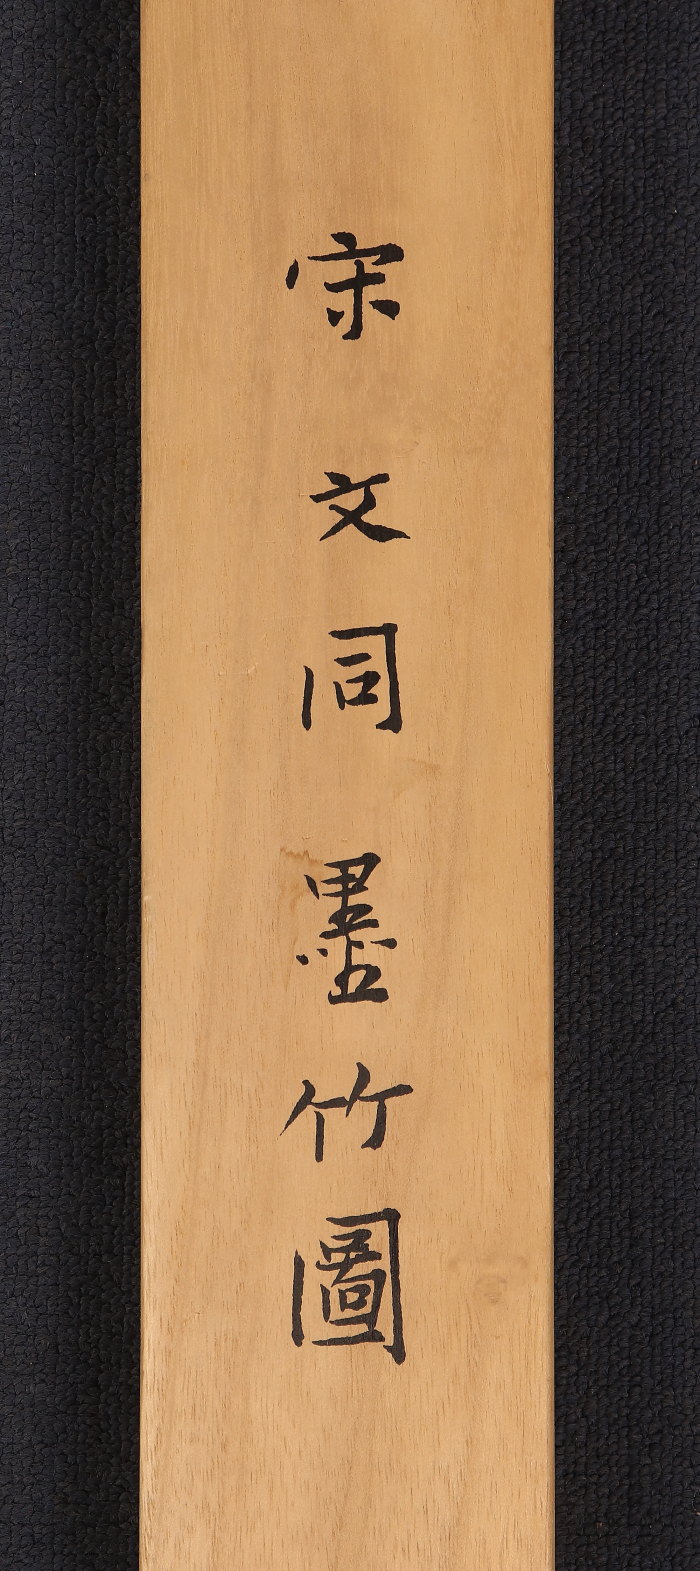 宋文同墨竹圖